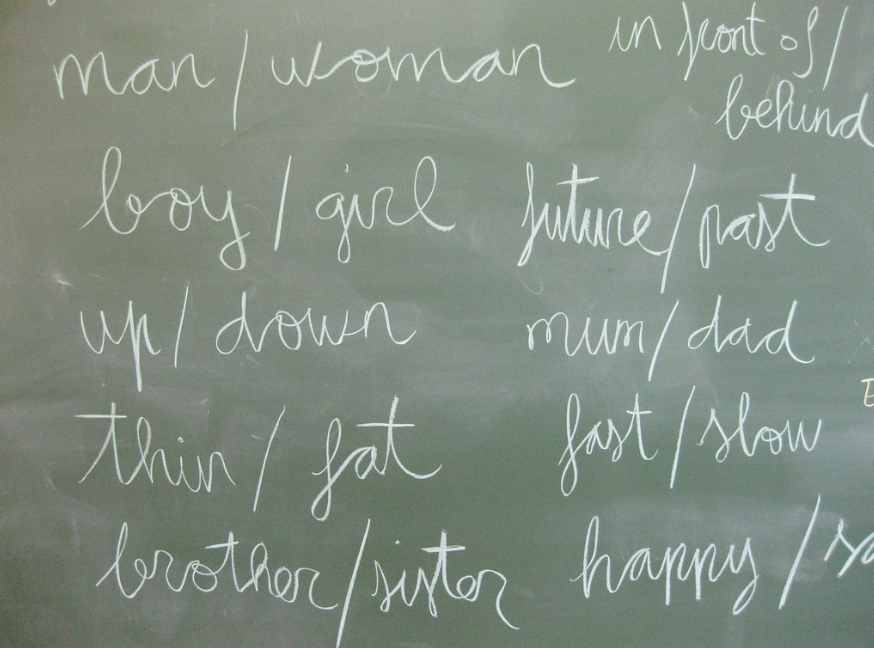 man / woman
boy / girl
up / down
thin / fat
brother / sister
in front of /
behind
future / past
mum / dad
fast / slow
happy /